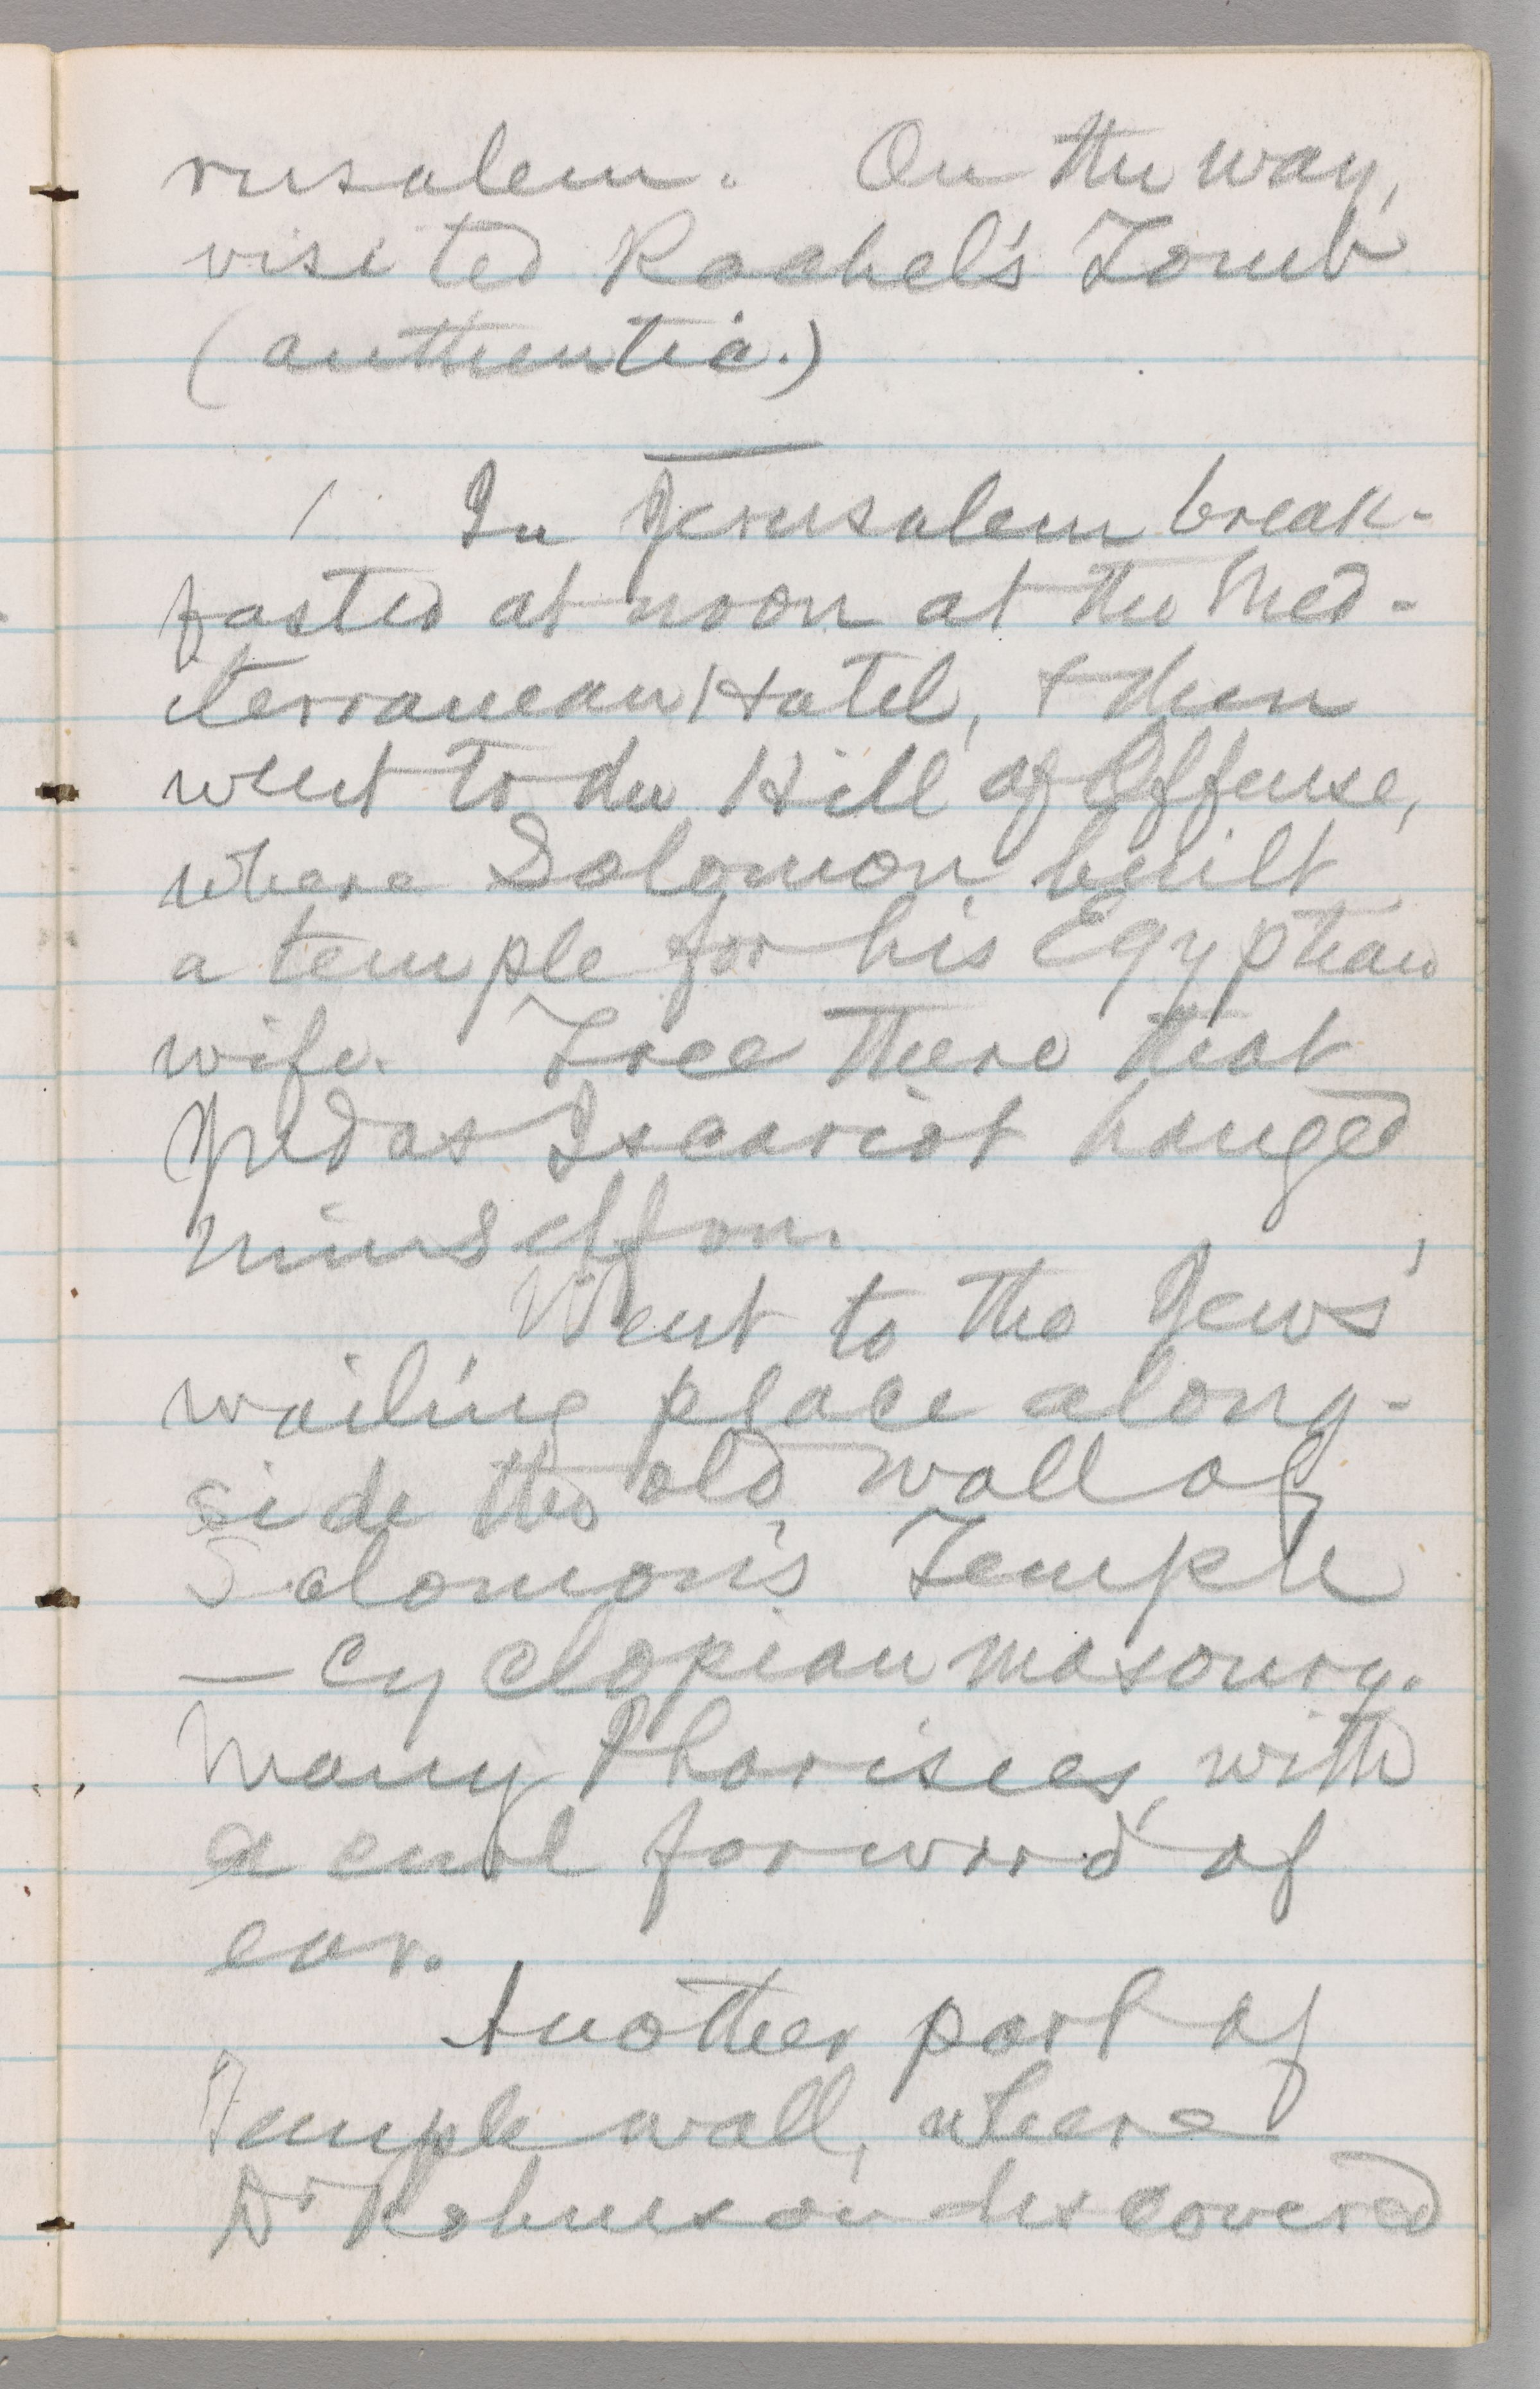 rusalem. On the way,
visited Rachel's Tomb
(authentic.)
In Jerusalem break-
fasted at noon at the Med-
iterranean Hotel, & then
went to the Hill of Offense,
where Solomon built
a temple for his Egyptian
wife. Tree there that
Judas Iscariot hanged
himself on.
Went to the Jews'
wailing place along-
side the old wall of
Solomon's Temple
— cyclopian masonry.
Many Pharisees, with
a curl forward of
ear.
Another part of
Temple wall, where
Dr Robinson discovered